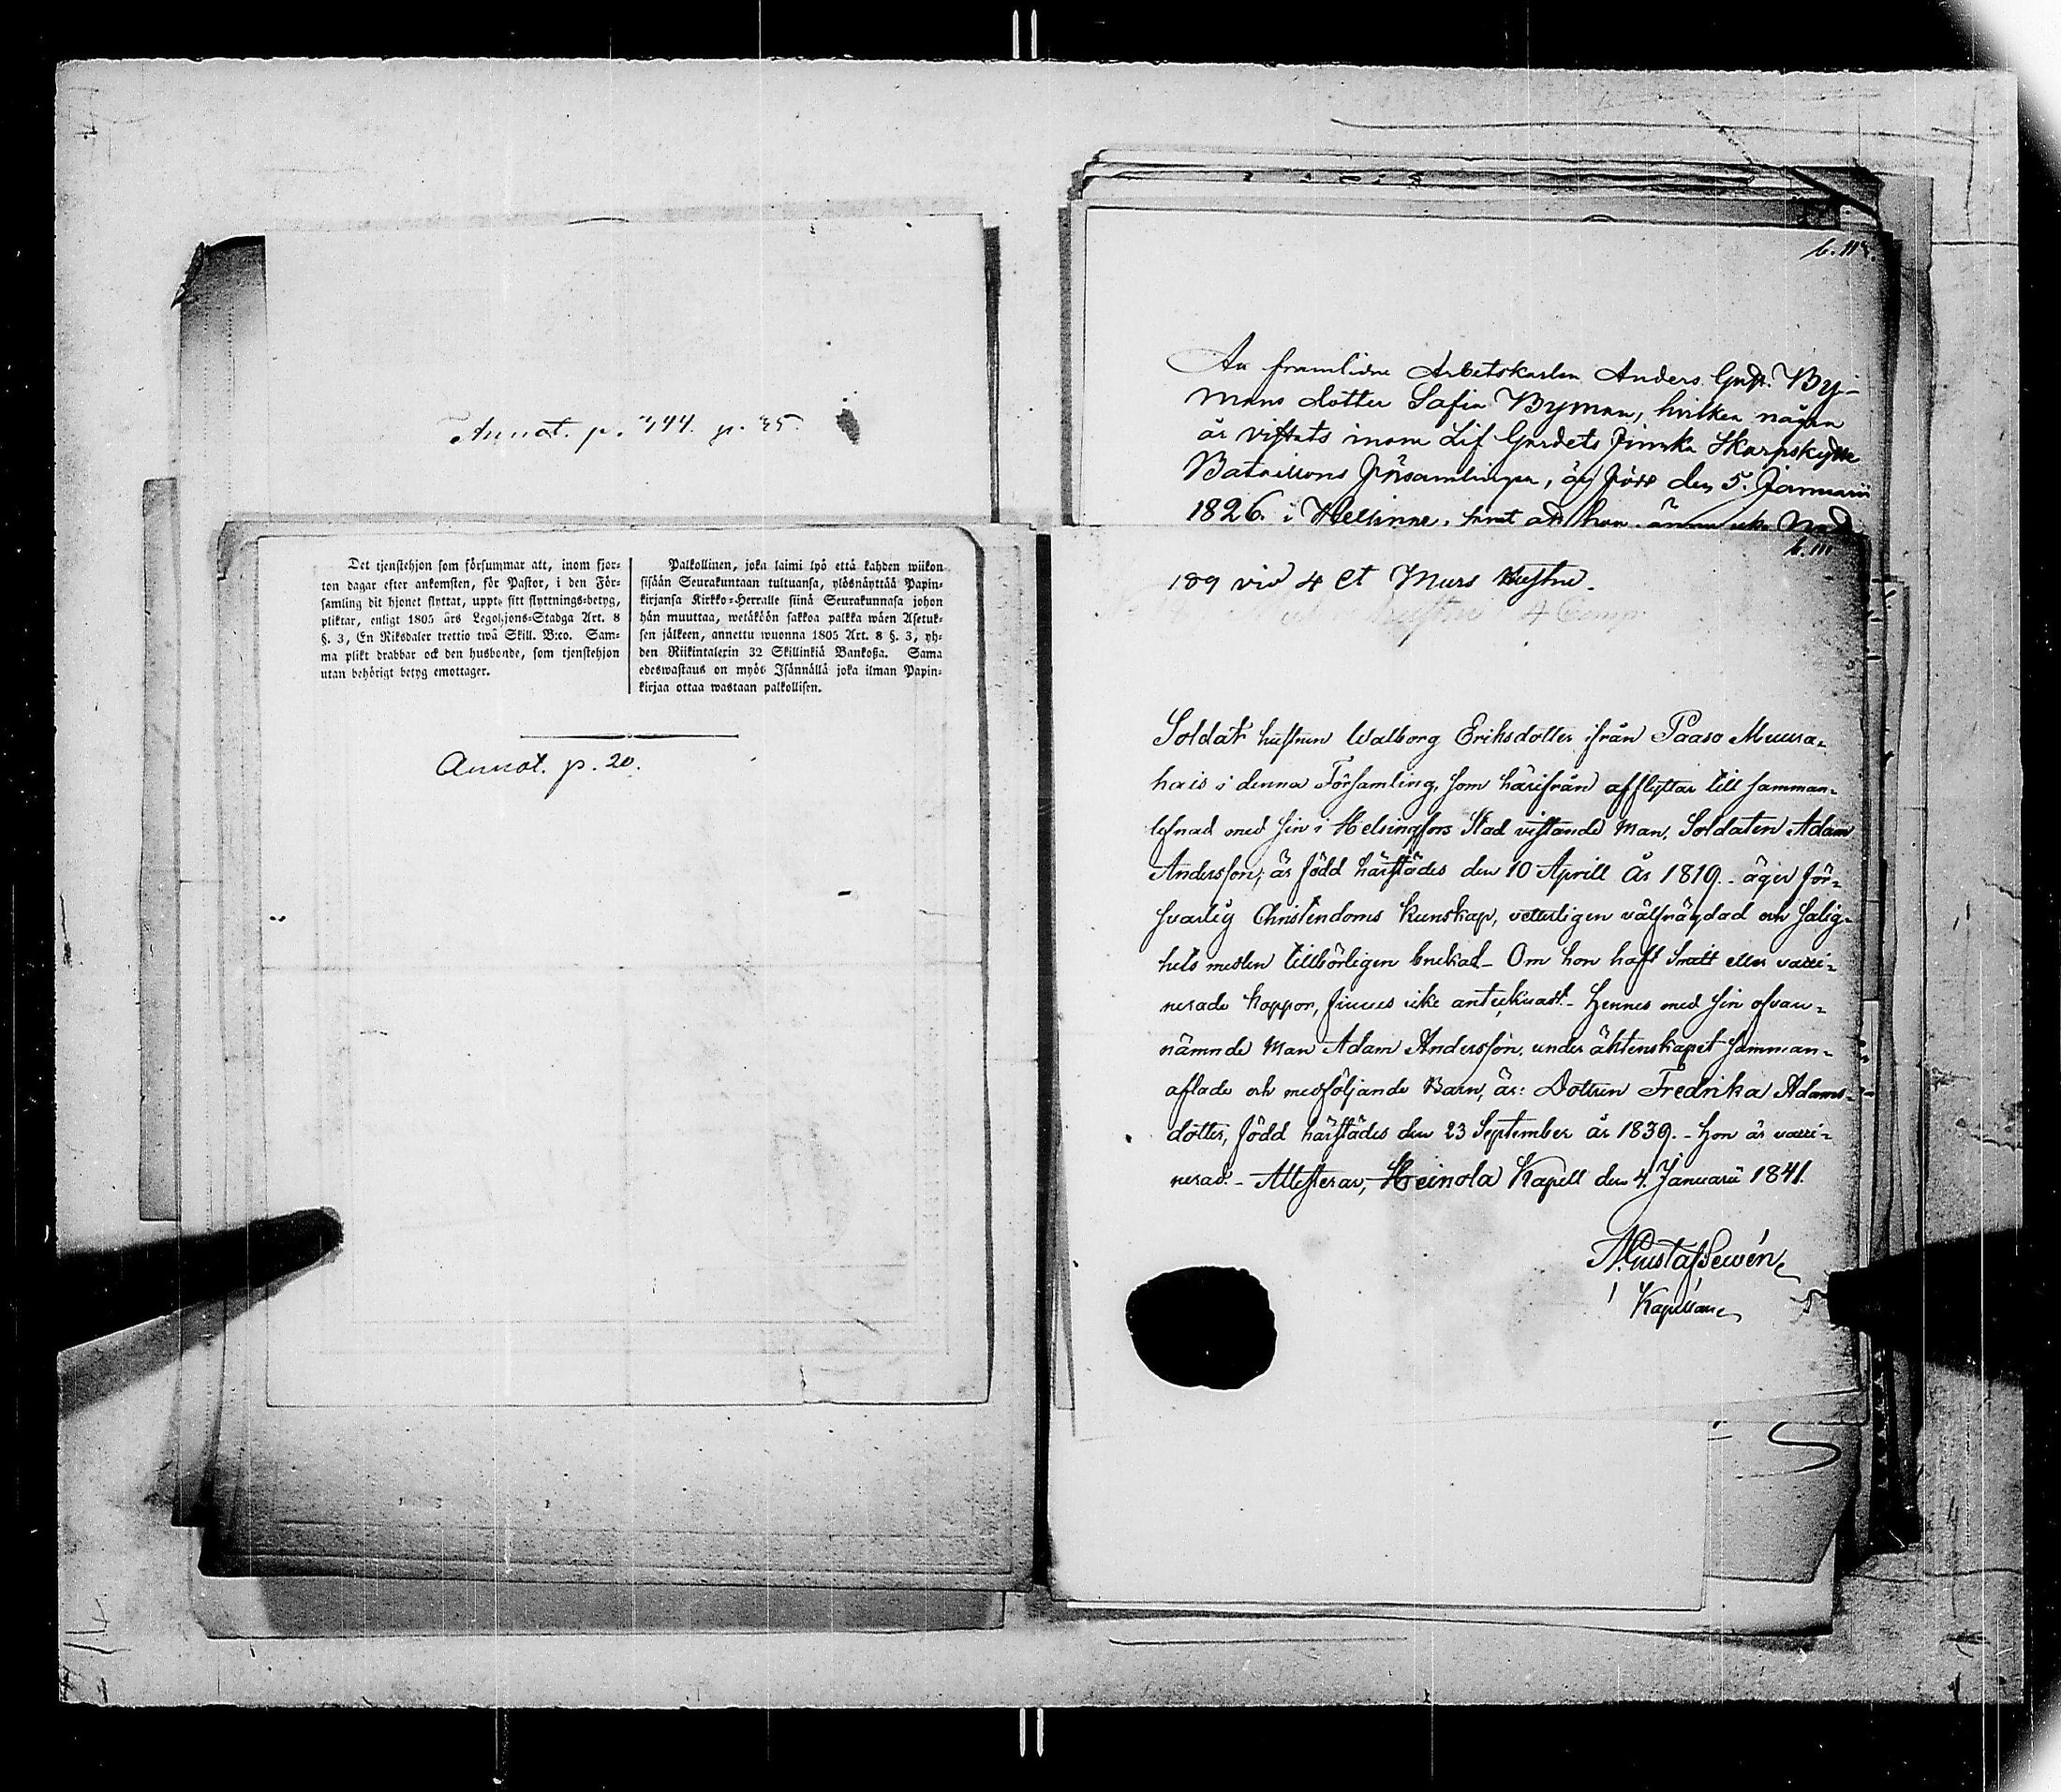 Annot. p. 444. p. 45.
Det tjenstehjon som försummar att, inom fjor-
ton dagar efter ankomsten, för Pastor, i den För-
samling dit hjonet flyttat, uppte sitt flyttnings-betyg,
pliktar, enligt 1805 års Legohjons-Stadga Art. 8
§. 3, En Riksdaler trettio twå Skill. B:co. Sam-
ma plikt drabbar ock den husbonde, som tjenstehjon
utan behörigt betyg emottager.
Palkollinen, joka laimi lyö että kahden wiikon
sisään Seurakuntaan tultuansa, ylösnäyttää Papin-
kirjansa Kirkko-Herralle siinä Seurakunnasa johon
hän muuttaa, wetäköön sakkoa palkka wäen Asetuk-
sen jälkeen, annettu wuonna 1805 Art. 8 §. 3, yh-
den Riikintalerin 32 Skillinkiä Bankoßa. Sama
edeswastaus on myös Isännällä joka ilman Papin-
kirjaa ottaa wastaan palkollisen.
Annot. p. 20.
b. 112.
Au framlidne Arbetskarlen Anders Gust. By-
mans dotter Sofia Byman, hvilken några
år vistats inom Lif Gardets Finska Skarpskytte
Bataillons församlingen, är född den 5. Januarii
1826. i Helsinge, samt att hon ännu icke
b. 111
189 vid 4 Ct Murs hustru.
Soldats hustrun Walborg Eriksdotter ifrån Paaso Muura-
hais i denna Församling, som härifrån afflyttar till samman-
lefnad med sin i Helsingfors Stad vistande Man, Soldaten Adam
Andersson, är född härstädes den 10 Aprill År 1819. - äger för-
svarlig Christendoms kunskap, vetterligen välfrägdad och salig-
hets medlen tillbörligen brukat - Om hon haft smått eller vacci-
nerade koppor, finnes icke antecknadt. - Hennes med sin ofvan-
nämnde Man Adam Andersson, under äktenskapet samman-
aflade och medföljande Barn, är: Dottren Fredrika Adams-
dotter, född härstädes den 23 September år 1839. - Hon är vacci-
nerad. - Attesterar, Heinola Kapell den 4. Januarii 1841.
A. Gustaf Sewén
Kapellan